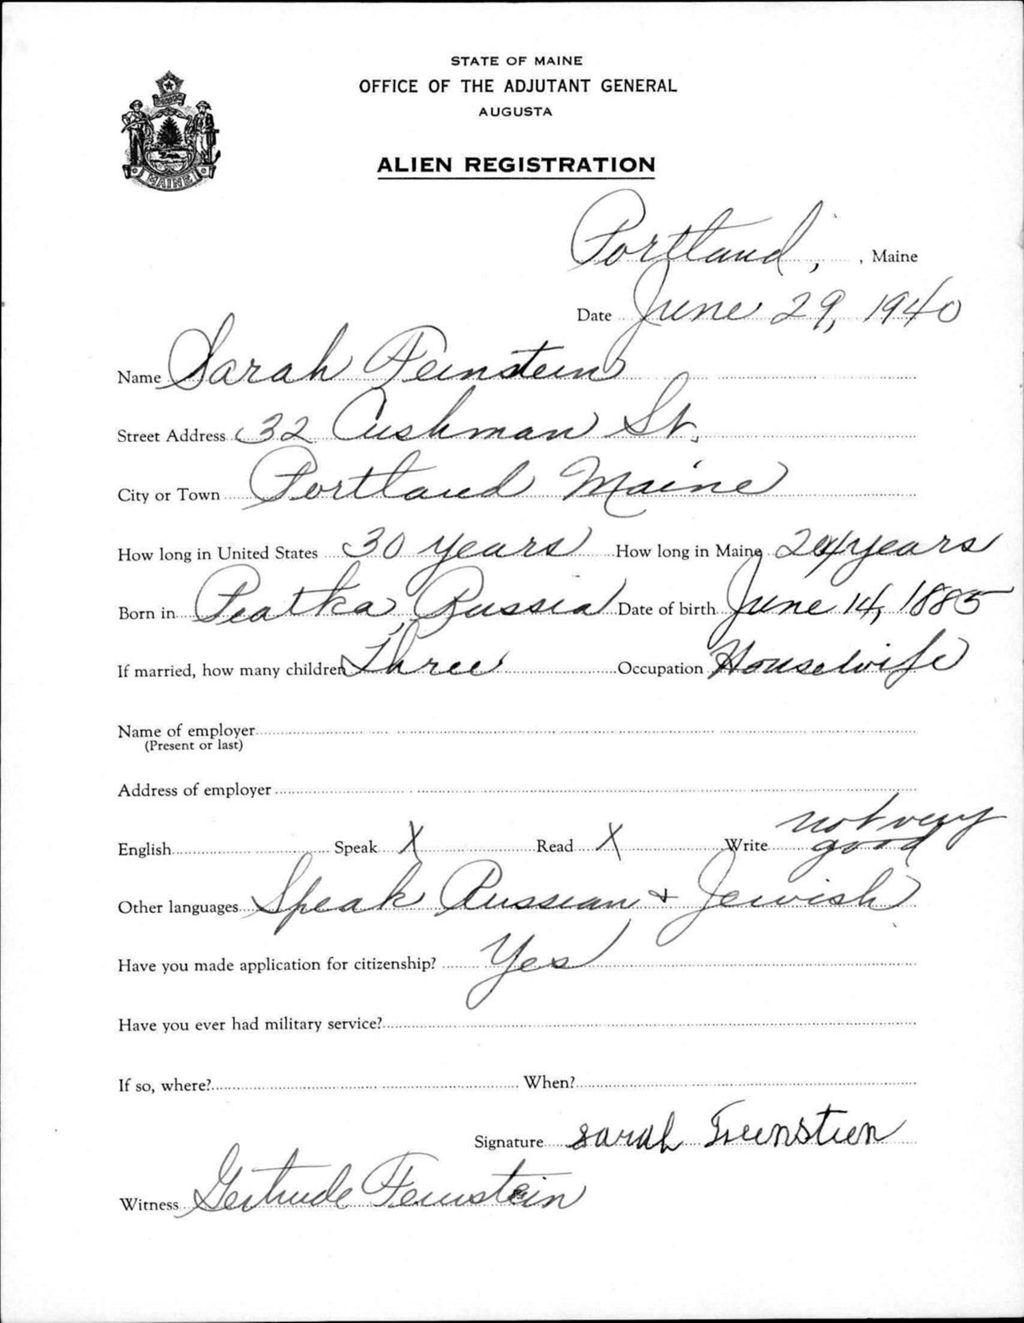 STATE OF MAINE
OFFICE OF THE ADJUTANT GENERAL
AUGUSTA
MAINE
ALIEN REGISTRATION
Portland, , Maine
Date June 29, 1940
Name Sarah Feinstein
Street Address 32 Cushman St.
City or Town Portland Maine
How long in United States 30 years How long in Maine 24 years
Born in Peatka, Russia Date of birth June 14, 1885
If married, how many children Three Occupation Housewife
Name of employer
(Present or last)
Address of employer
English Speak X Read X Write not very good
Other languages Speak Russian + Jewish
Have you made application for citizenship? Yes
Have you ever had military service?
If so, where? When?
Signature Sarah Feinstien
Witness Gertrude Feinstein